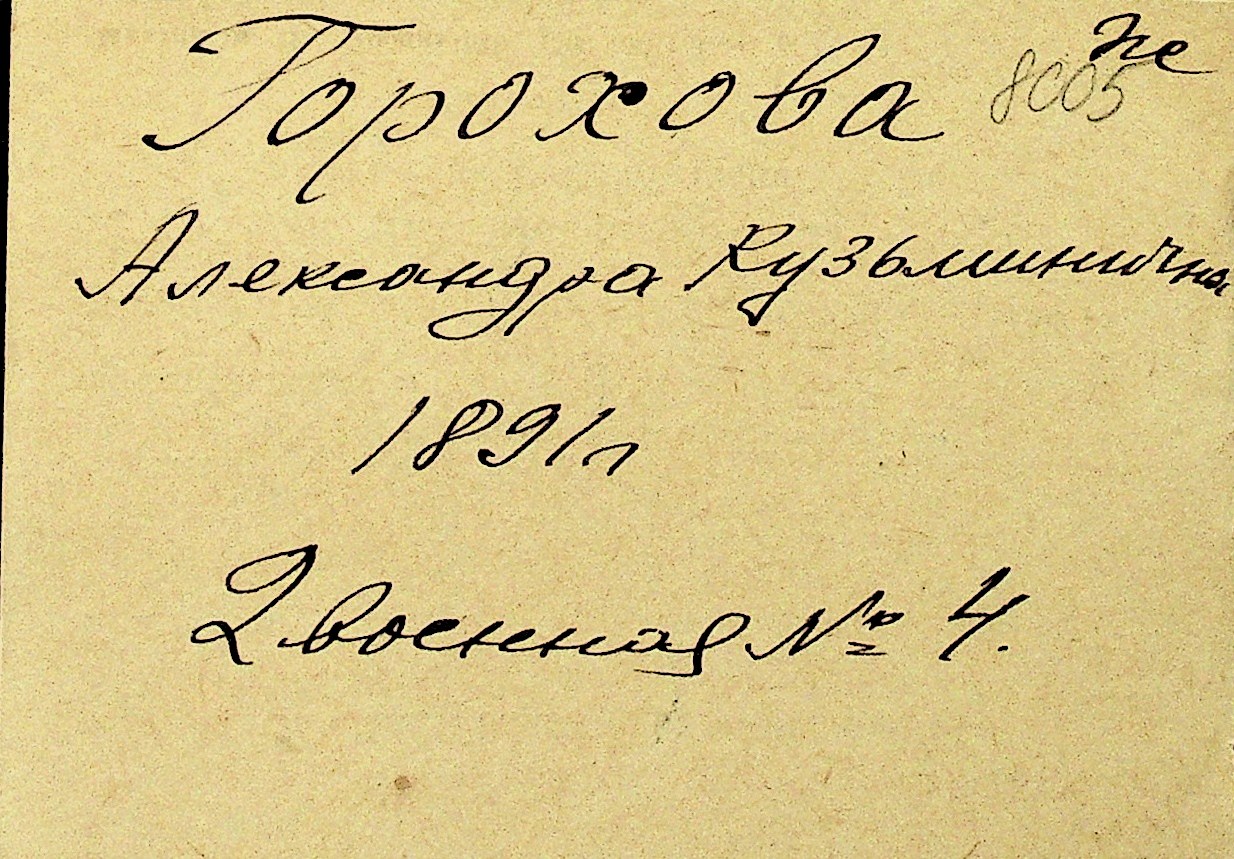 Горохова
8005
Александра Кузьминична
1891г
2 военная № 4.